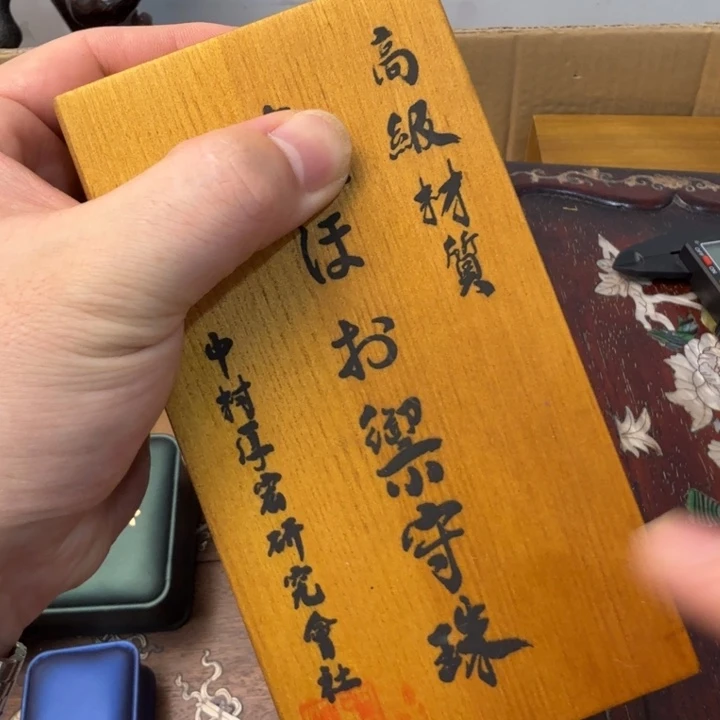 高級材質
ほお禦守珠
中村研究會社